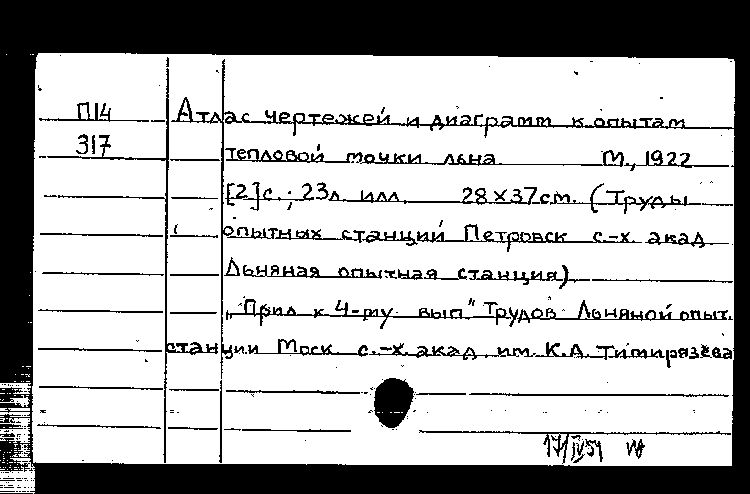 П14 Атлас чертежей и диаграмм к опытам
317 тепловой мочки льна М., 1922
[2]с.; 23л. илл. 28×37см. (Труды
опытных станций Петровск с.-х. акад.
Льняная опытная станция)
„Прил к 4-му вып." Трудов Льняной опыт.
станции Моск с.-х. акад. им. К.А. Тимирязева
17/IV51